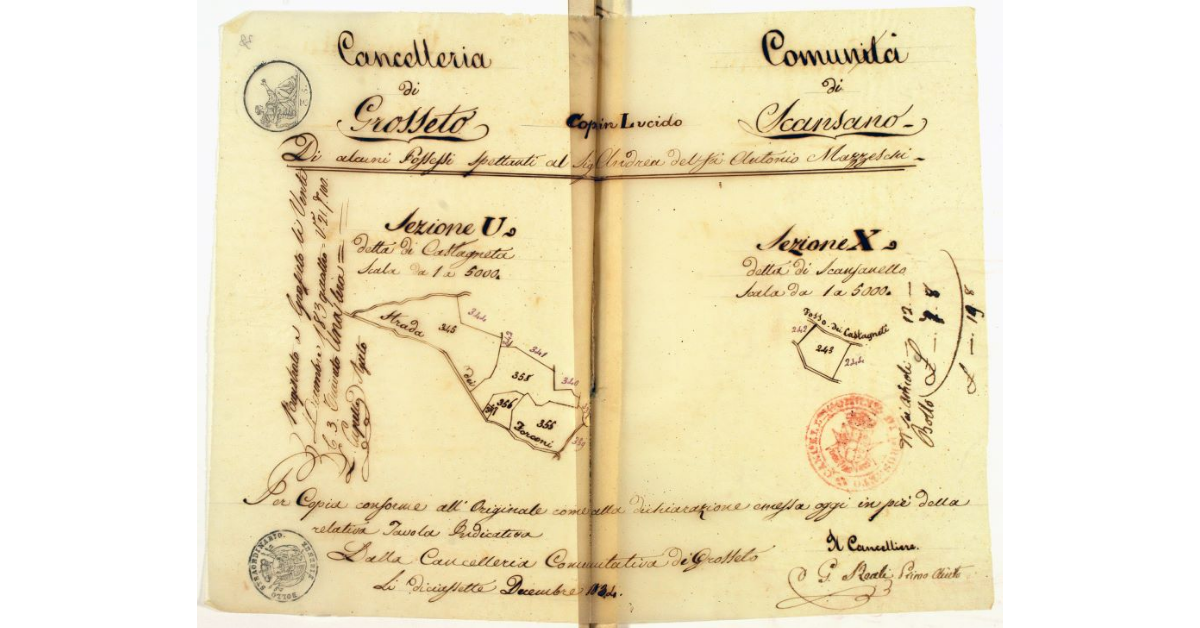 Cancelleria
di
Grosseto
Copia in Lucido
Comunità
di
Scansano
Di alcuni Possessi spettanti al Sig Andrea del fù Antonio Mazzeschi
Registrato a Grosseto li Venti
Dicembre 183
Sezione U
detta di Castagneta
Scala da 1 a 5000.
Strada
345
344
341
340
358
di
356
355
Forconi
Sezione X
detta di Scansanello
Scala da 1 a 5000.
Fosso dei Castagneti
242
243
244
12
Bollo 7.8
£ 19 8
Per Copia conforme all'Originale come alla dichiarazione emessa oggi in piè della
relativa Tavola Indicativa
Dalla Cancelleria Comunitativa di Grosseto
Li diciassette Decembre 1834.
Il Cancelliere.
G. Reali Primo Aiuto
BOLLO STRAORDINARIO.